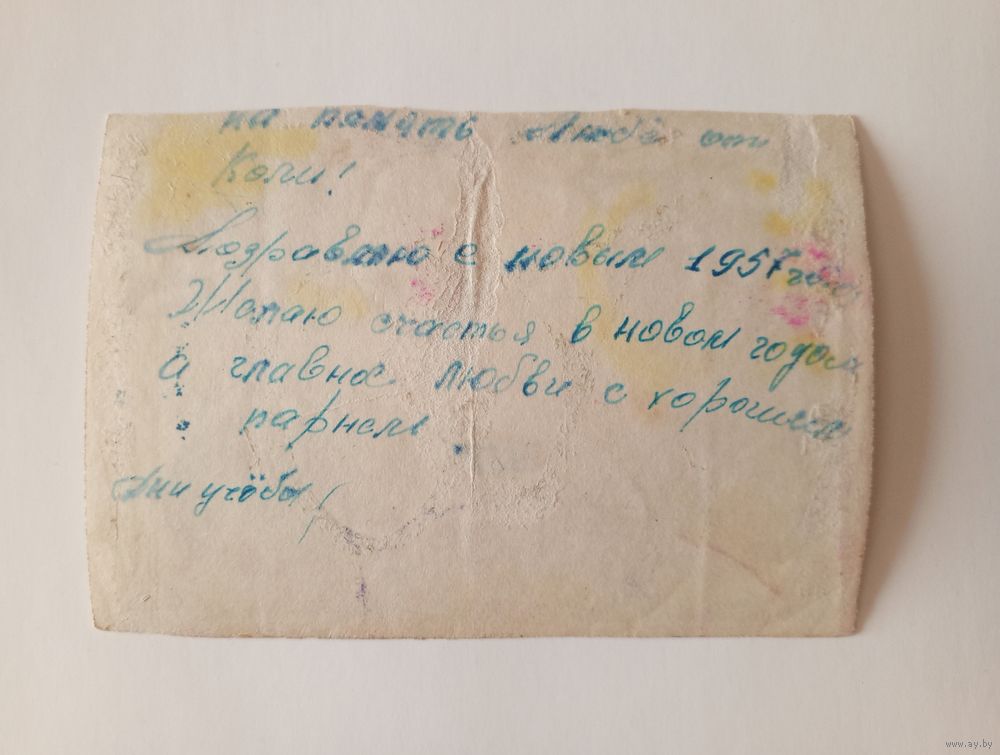 на память Любе от
Коли!
Поздравляю с новым 1957 годом
Желаю счастья в новом годом
а главное любви с хорошим
парнем.
Дни учёбы!
www.ay.by